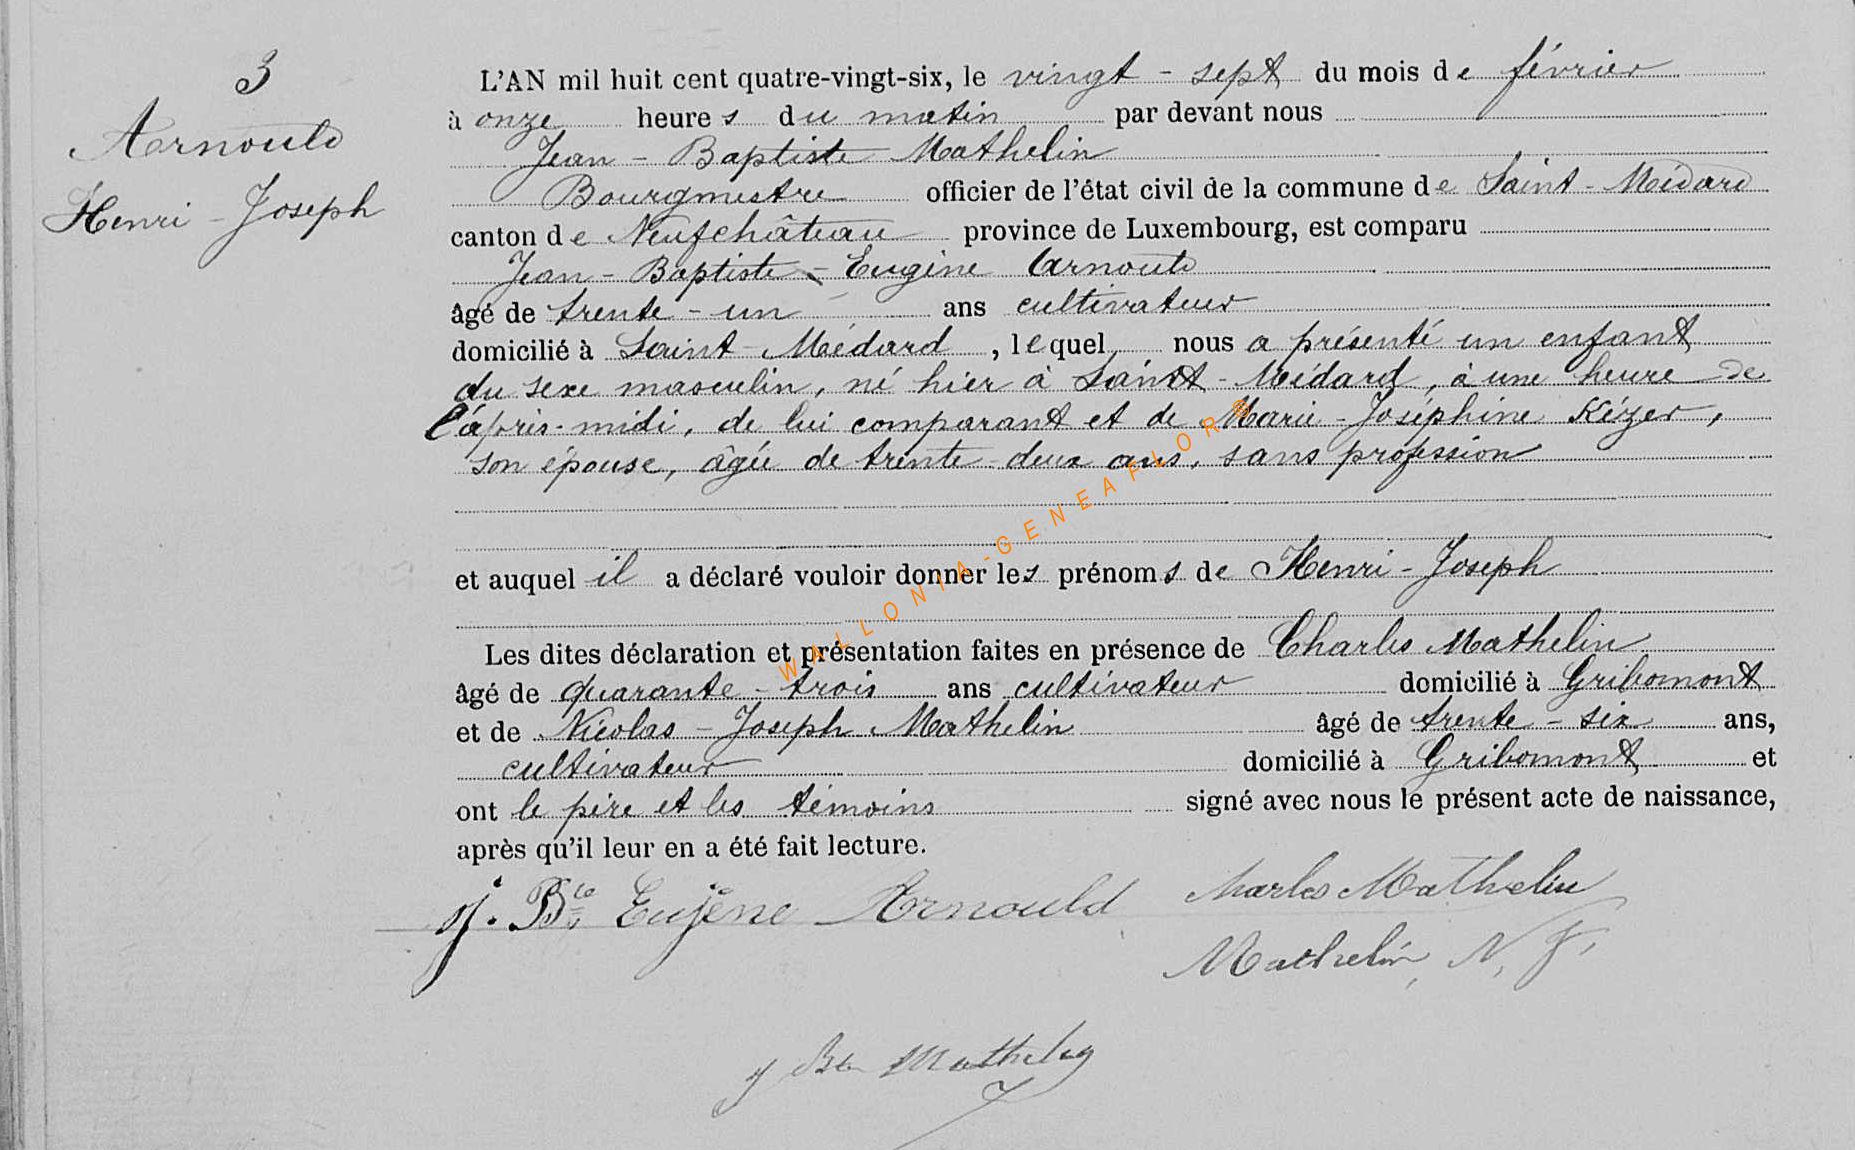 3
Arnould
Henri - Joseph
L'AN mil huit cent quatre-vingt-six, le vingt - sept du mois de février
à onze heures du matin par devant nous
Jean - Baptiste Mathelin
Bourgmestre officier de l'état civil de la commune de Saint - Médard
canton de Neufchâteau province de Luxembourg, est comparu
Jean - Baptiste - Eugène Arnould
âgé de trente - un ans cultivateur
domicilié à Saint - Médard, lequel nous a présenté un enfant
du sexe masculin, né hier à Saint - Médard, à une heure de
l'après-midi, de lui comparant et de Marie - Joséphine Kézer,
son épouse, âgée de trente - deux ans, sans profession
et auquel il a déclaré vouloir donner les prénoms de Henri - Joseph
Les dites déclaration et présentation faites en présence de Charles Mathelin
âgé de quarante - trois ans cultivateur domicilié à Gribomont
et de Nicolas - Joseph Mathelin âgé de trente - six ans,
cultivateur domicilié à Gribomont et
ont le père et les témoins signé avec nous le présent acte de naissance,
après qu'il leur en a été fait lecture.
J. Bte Eujène Arnould Charles Mathelin
Mathelin, N. J.
J Bte Mathelin
WALLONIA-GENEAFLOR®